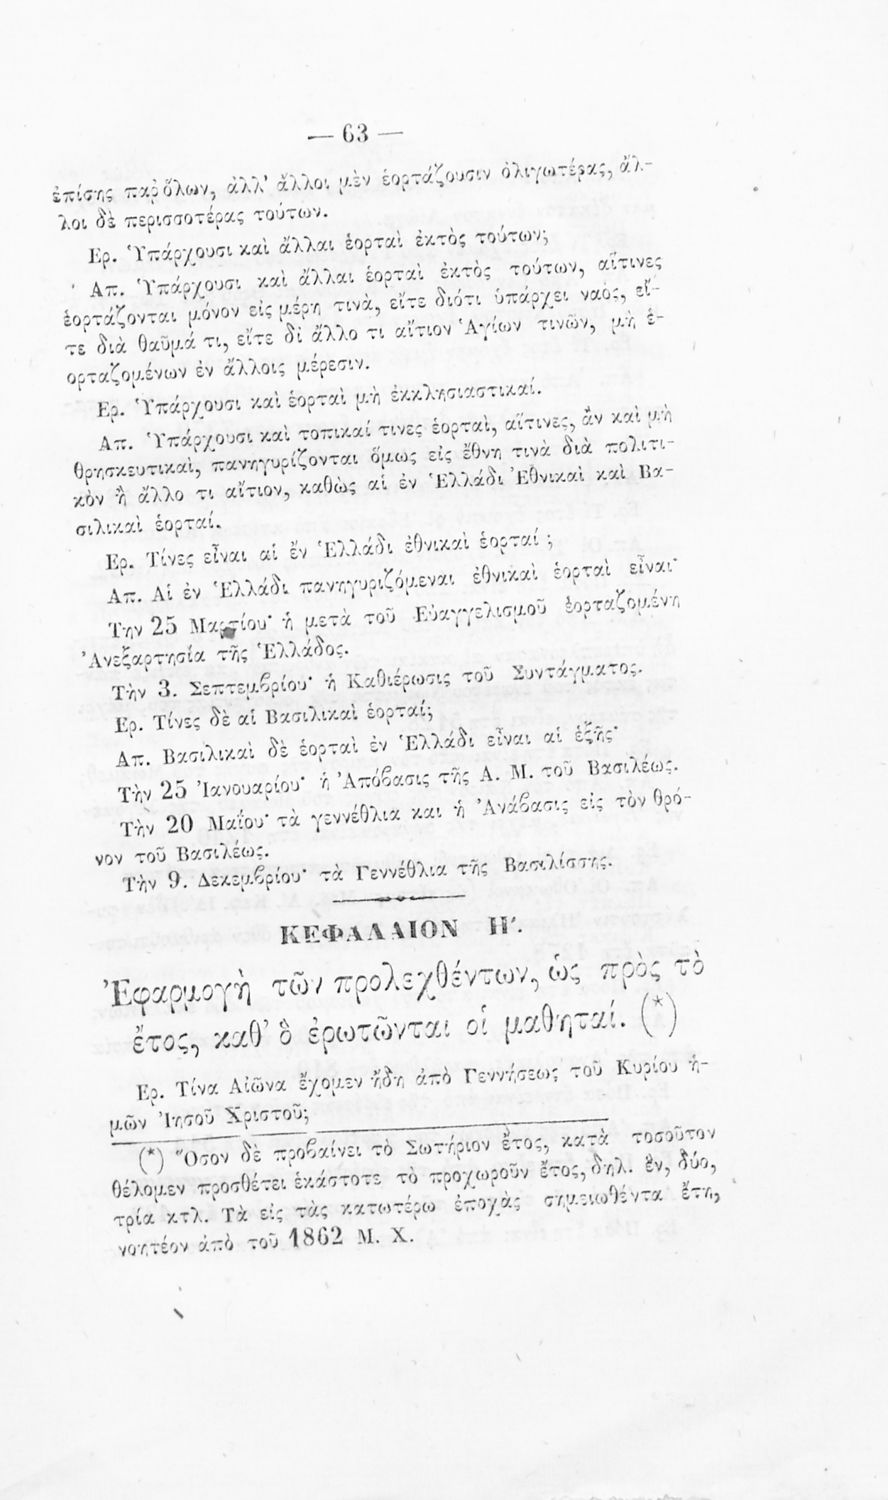 — 63 —
ἐπίσης παρ' ὅλων, ἀλλ' ἄλλοι μὲν ἑορτάζουσιν ὀλιγωτέρας, ἄλ-
λοι δὲ περισσοτέρας τούτων.
Ερ. Ὑπάρχουσι καὶ ἄλλαι ἑορταὶ ἐκτὸς τούτων;
Απ. Ὑπάρχουσι καὶ ἄλλαι ἑορταὶ ἐκτὸς τούτων, αἵτινες
ἑορτάζονται μόνον εἰς μέρη τινὰ, εἴτε διότι ὑπάρχει ναὸς, εἴ-
τε διὰ θαῦμά τι, εἴτε δι ἄλλο τι αἴτιον Ἁγίων τινῶν, μὴ ἑ-
ορταζομένων ἐν ἄλλοις μέρεσιν.
Ερ. Ὑπάρχουσι καὶ ἑορταὶ μὴ ἐκκλησιαστικαί.
Απ. Ὑπάρχουσι καὶ τοπικαί τινες ἑορταὶ, αἵτινες, ἂν καὶ μὴ
θρησκευτικαὶ, πανηγυρίζονται ὅμως εἰς ἔθνη τινὰ διὰ πολιτι-
κὸν ἢ ἄλλο τι αἴτιον, καθὼς αἱ ἐν Ἑλλάδι Ἐθνικαὶ καὶ Βα-
σιλικαὶ ἑορταί.
Ερ. Τίνες εἶναι αἱ ἔν Ἑλλάδι ἐθνικαὶ ἑορταί ;
Απ. Αἱ ἐν Ἑλλάδι πανηγυριζόμεναι ἐθνικαὶ ἑορταὶ εἶναι·
Τὴν 25 Μαρτίου· ἡ μετὰ τοῦ Εὐαγγελισμοῦ ἑορταζομένη
Ἀνεξαρτησία τῆς Ἑλλάδος.
Τὴν 3. Σεπτεμβρίου· ἡ Καθιέρωσις τοῦ Συντάγματος.
Ερ. Τίνες δὲ αἱ Βασιλικαὶ ἑορταί;
Απ. Βασιλικαὶ δὲ ἑορταὶ ἐν Ἑλλάδι εἶναι αἱ ἑξῆς·
Τὴν 25 Ἰανουαρίου· ἡ Ἀπόβασις τῆς Α. Μ. τοῦ Βασιλέως.
Τὴν 20 Μαΐου· τὰ γεννέθλια και ἡ Ἀνάβασις εἰς τὸν θρό-
νον τοῦ Βασιλέως.
Τὴν 9. Δεκεμβρίου· τὰ Γεννέθλια τῆς Βασιλίσσης.
ΚΕΦΑΛΑΙΟΝ Η'.
Ἐφαρμογὴ τῶν προλεχθέντων, ὡς πρὸς τὸ
ἔτος, καθ' ὃ ἐρωτῶνται οἱ μαθηταί. (*)
Ερ. Τίνα Αἰῶνα ἔχομεν ἤδη ἀπὸ Γεννήσεως τοῦ Κυρίου ἡ-
μῶν Ἰησοῦ Χριστοῦ;
(*) Ὅσον δὲ προβαίνει τὸ Σωτήριον ἔτος, κατὰ τοσοῦτον
θέλομεν προσθέτει ἑκάστοτε τὸ προχωροῦν ἔτος, δηλ. ἓν, δύο,
τρία κτλ. Τὰ εἰς τὰς κατωτέρω ἐποχὰς σημειωθέντα ἔτη,
νοητέον ἀπὸ τοῦ 1862 Μ. Χ.